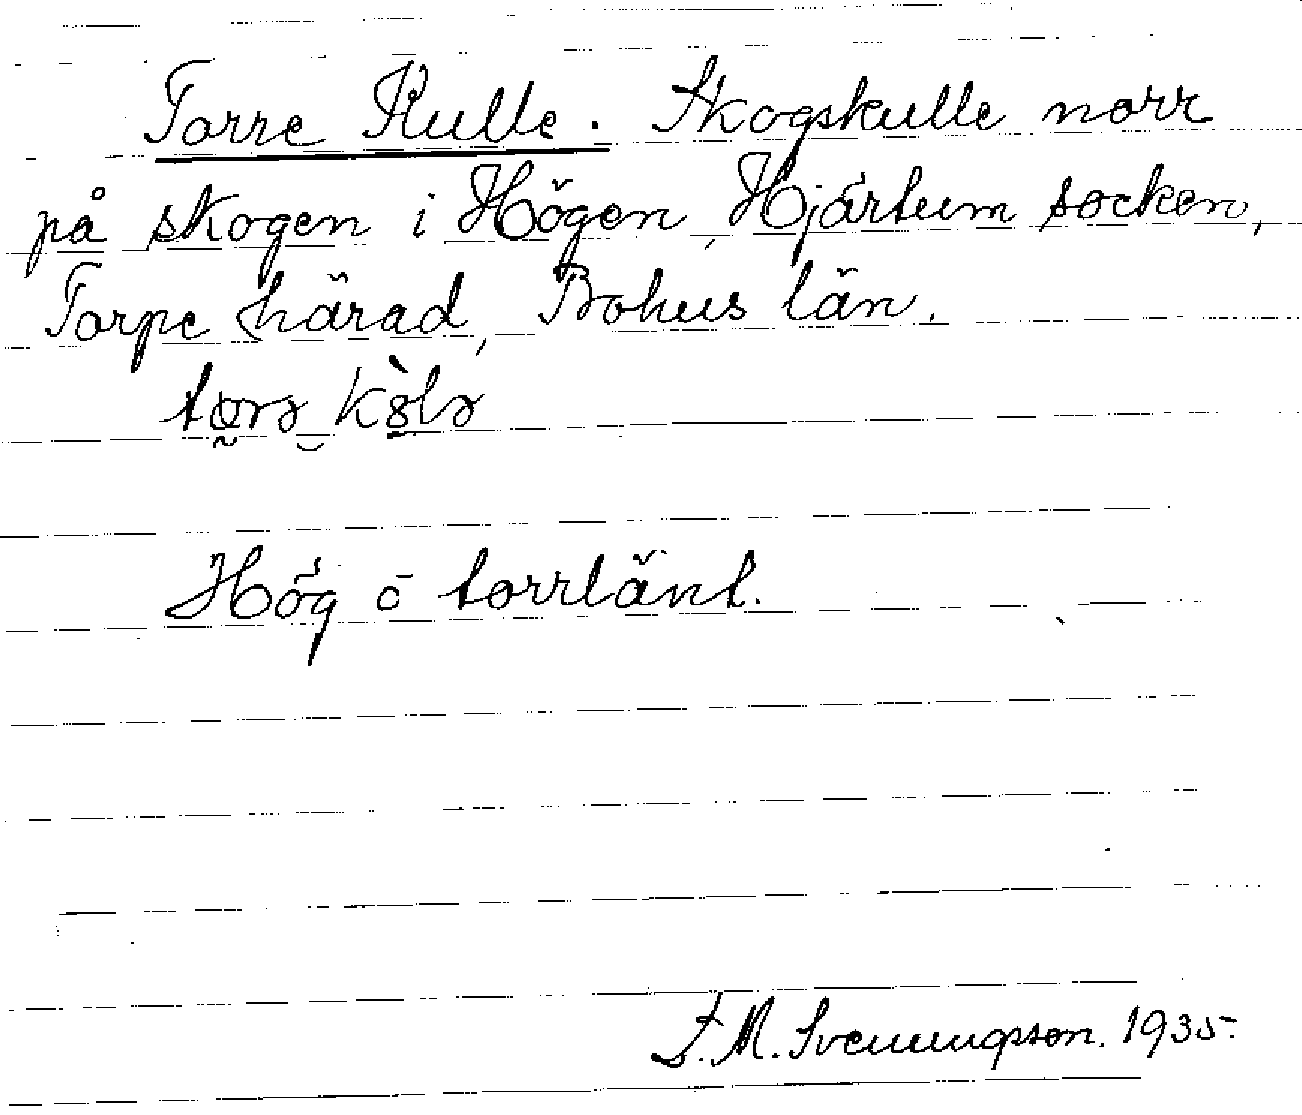 Torre Kulle. Skogskulle norr
på skogen i Högen, Hjärtum socken,
Torpe härad, Bohus län.
Hög ō torrlänt.
F. M. Svenungsson. 1935.